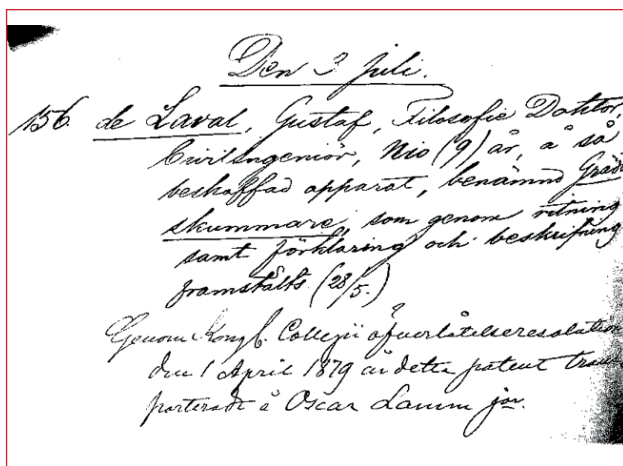 Den 3 juli.
156. de Laval, Gustaf, Filosofie Doktor,
Civilingeniör, Nio (9) år, å så
beskaffad apparat, benämnd Grädd
skummare, som genom ritning
samt förklaring och beskrifning
framstälts. (28/5.)
Genom Kongl. Collegii öfverlåtelseresolution
den 1 April 1879 är detta patent trans
porteradt å Oscar Lamm jor.